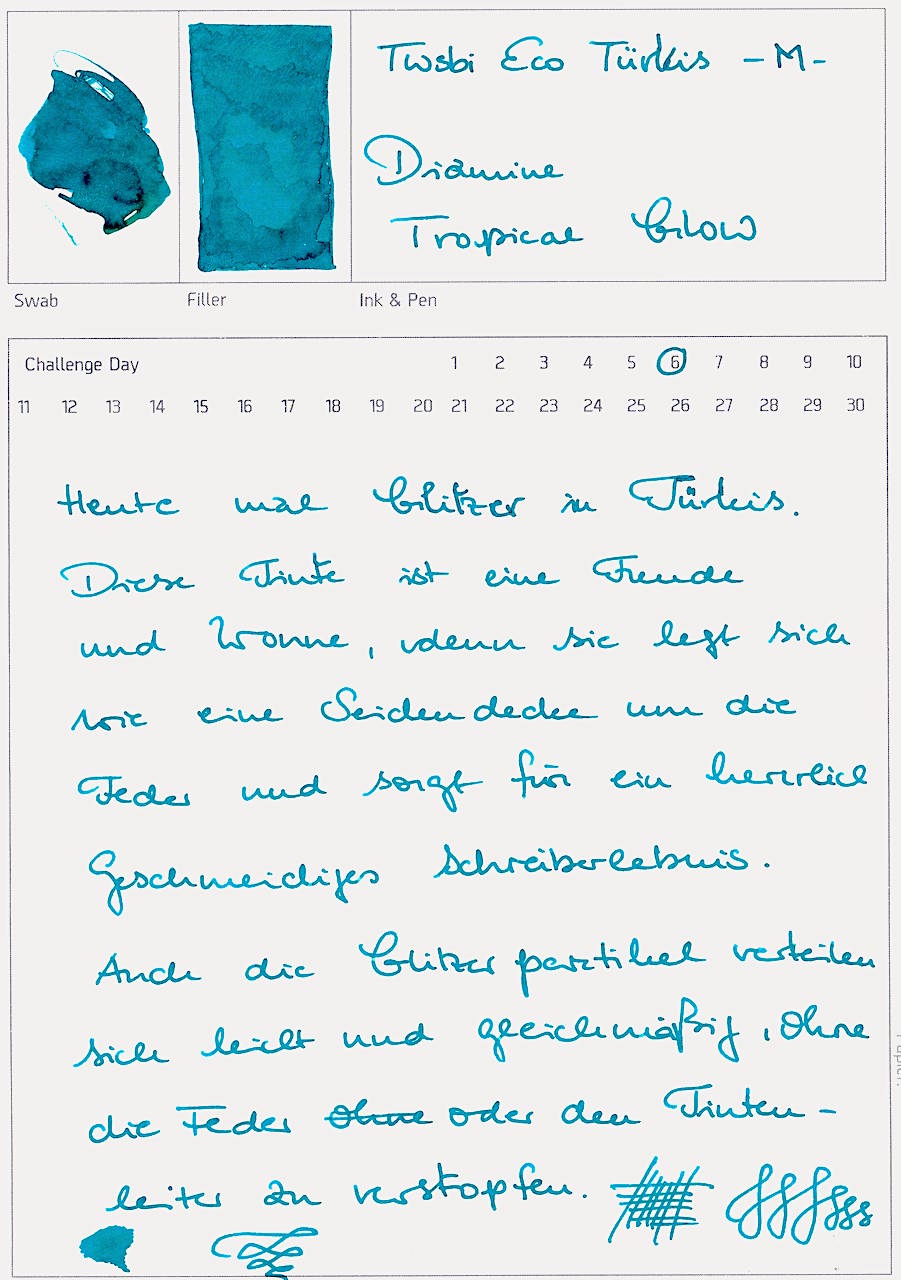 Twsbi Eco Türkis - M -
Diamine
Tropical Glow
Swab Filler Ink & Pen
Challenge Day 1 2 3 4 5 6 7 8 9 10
11 12 13 14 15 16 17 18 19 20 21 22 23 24 25 26 27 28 29 30
Heute mal Glitzer in Türkis.
Diese Tinte ist eine Freude
und Wonne, denn sie legt sich
wie eine Seidendecke um die
Feder und sorgt für ein herrlich
Geschmeidiges Schreiberlebnis.
Auch die Glitzerpartikel verteilen
sich leicht und gleichmäßig, ohne
die Feder ohne oder den Tinten-
leiter zu verstopfen.